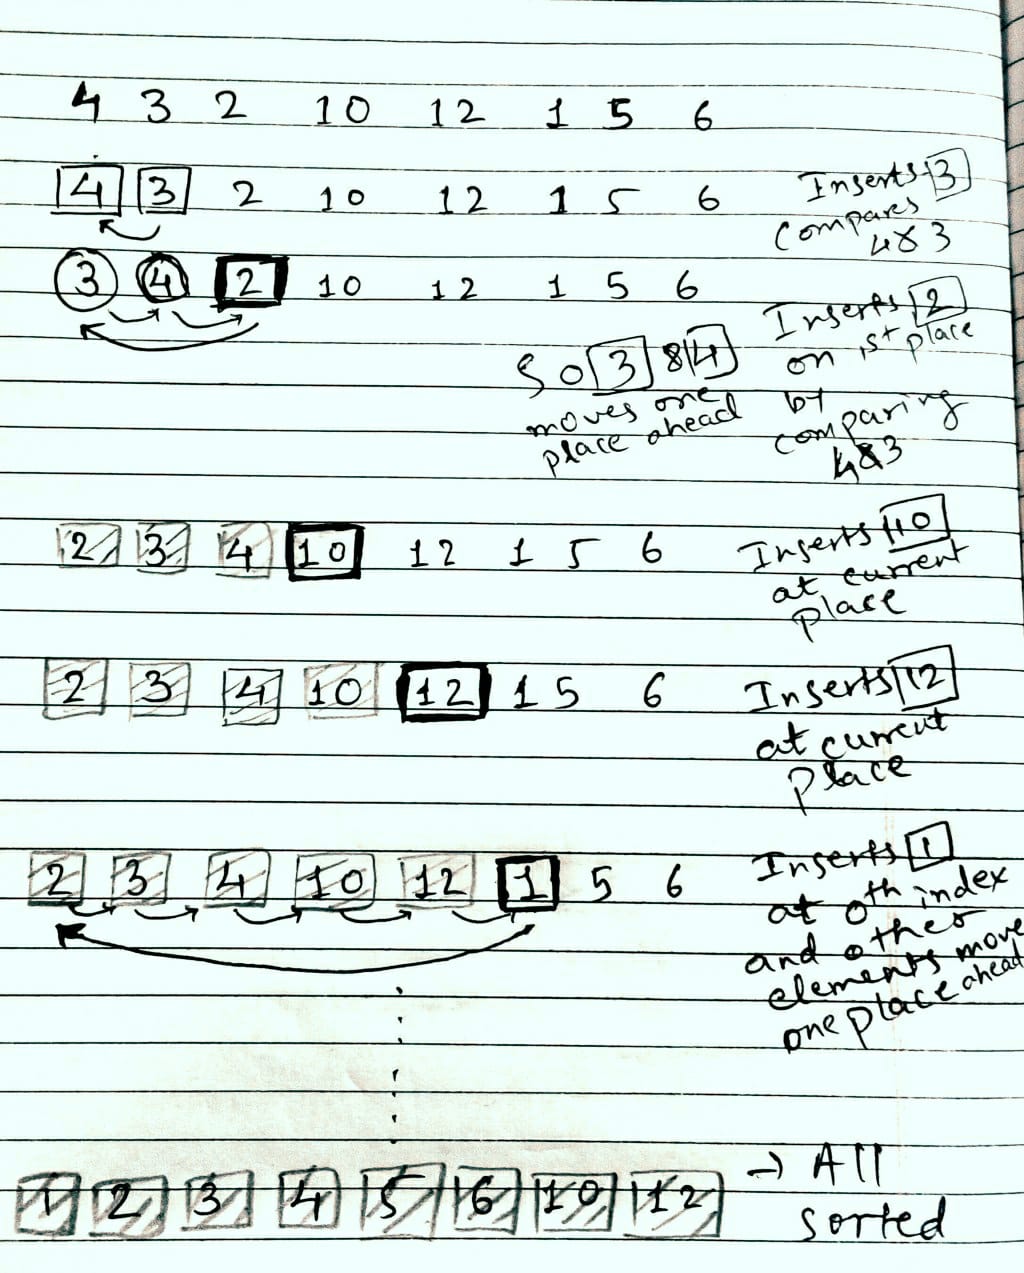 4 3 2 10 12 1 5 6
4 3 2 10 12 1 5 6
Inserts 3
compares
4 & 3
3 4 2 10 12 1 5 6
Inserts 2
on 1st place
by
comparing
4 & 3
So 3 & 4
moves one
place ahead
2 3 4 10 12 1 5 6
Inserts 10
at current
place
2 3 4 10 12 1 5 6
Inserts 12
at current
place
2 3 4 10 12 1 5 6
Inserts 1
at 0th index
and other
elements move
one place ahead
1 2 3 4 5 6 10 12
→ All
sorted